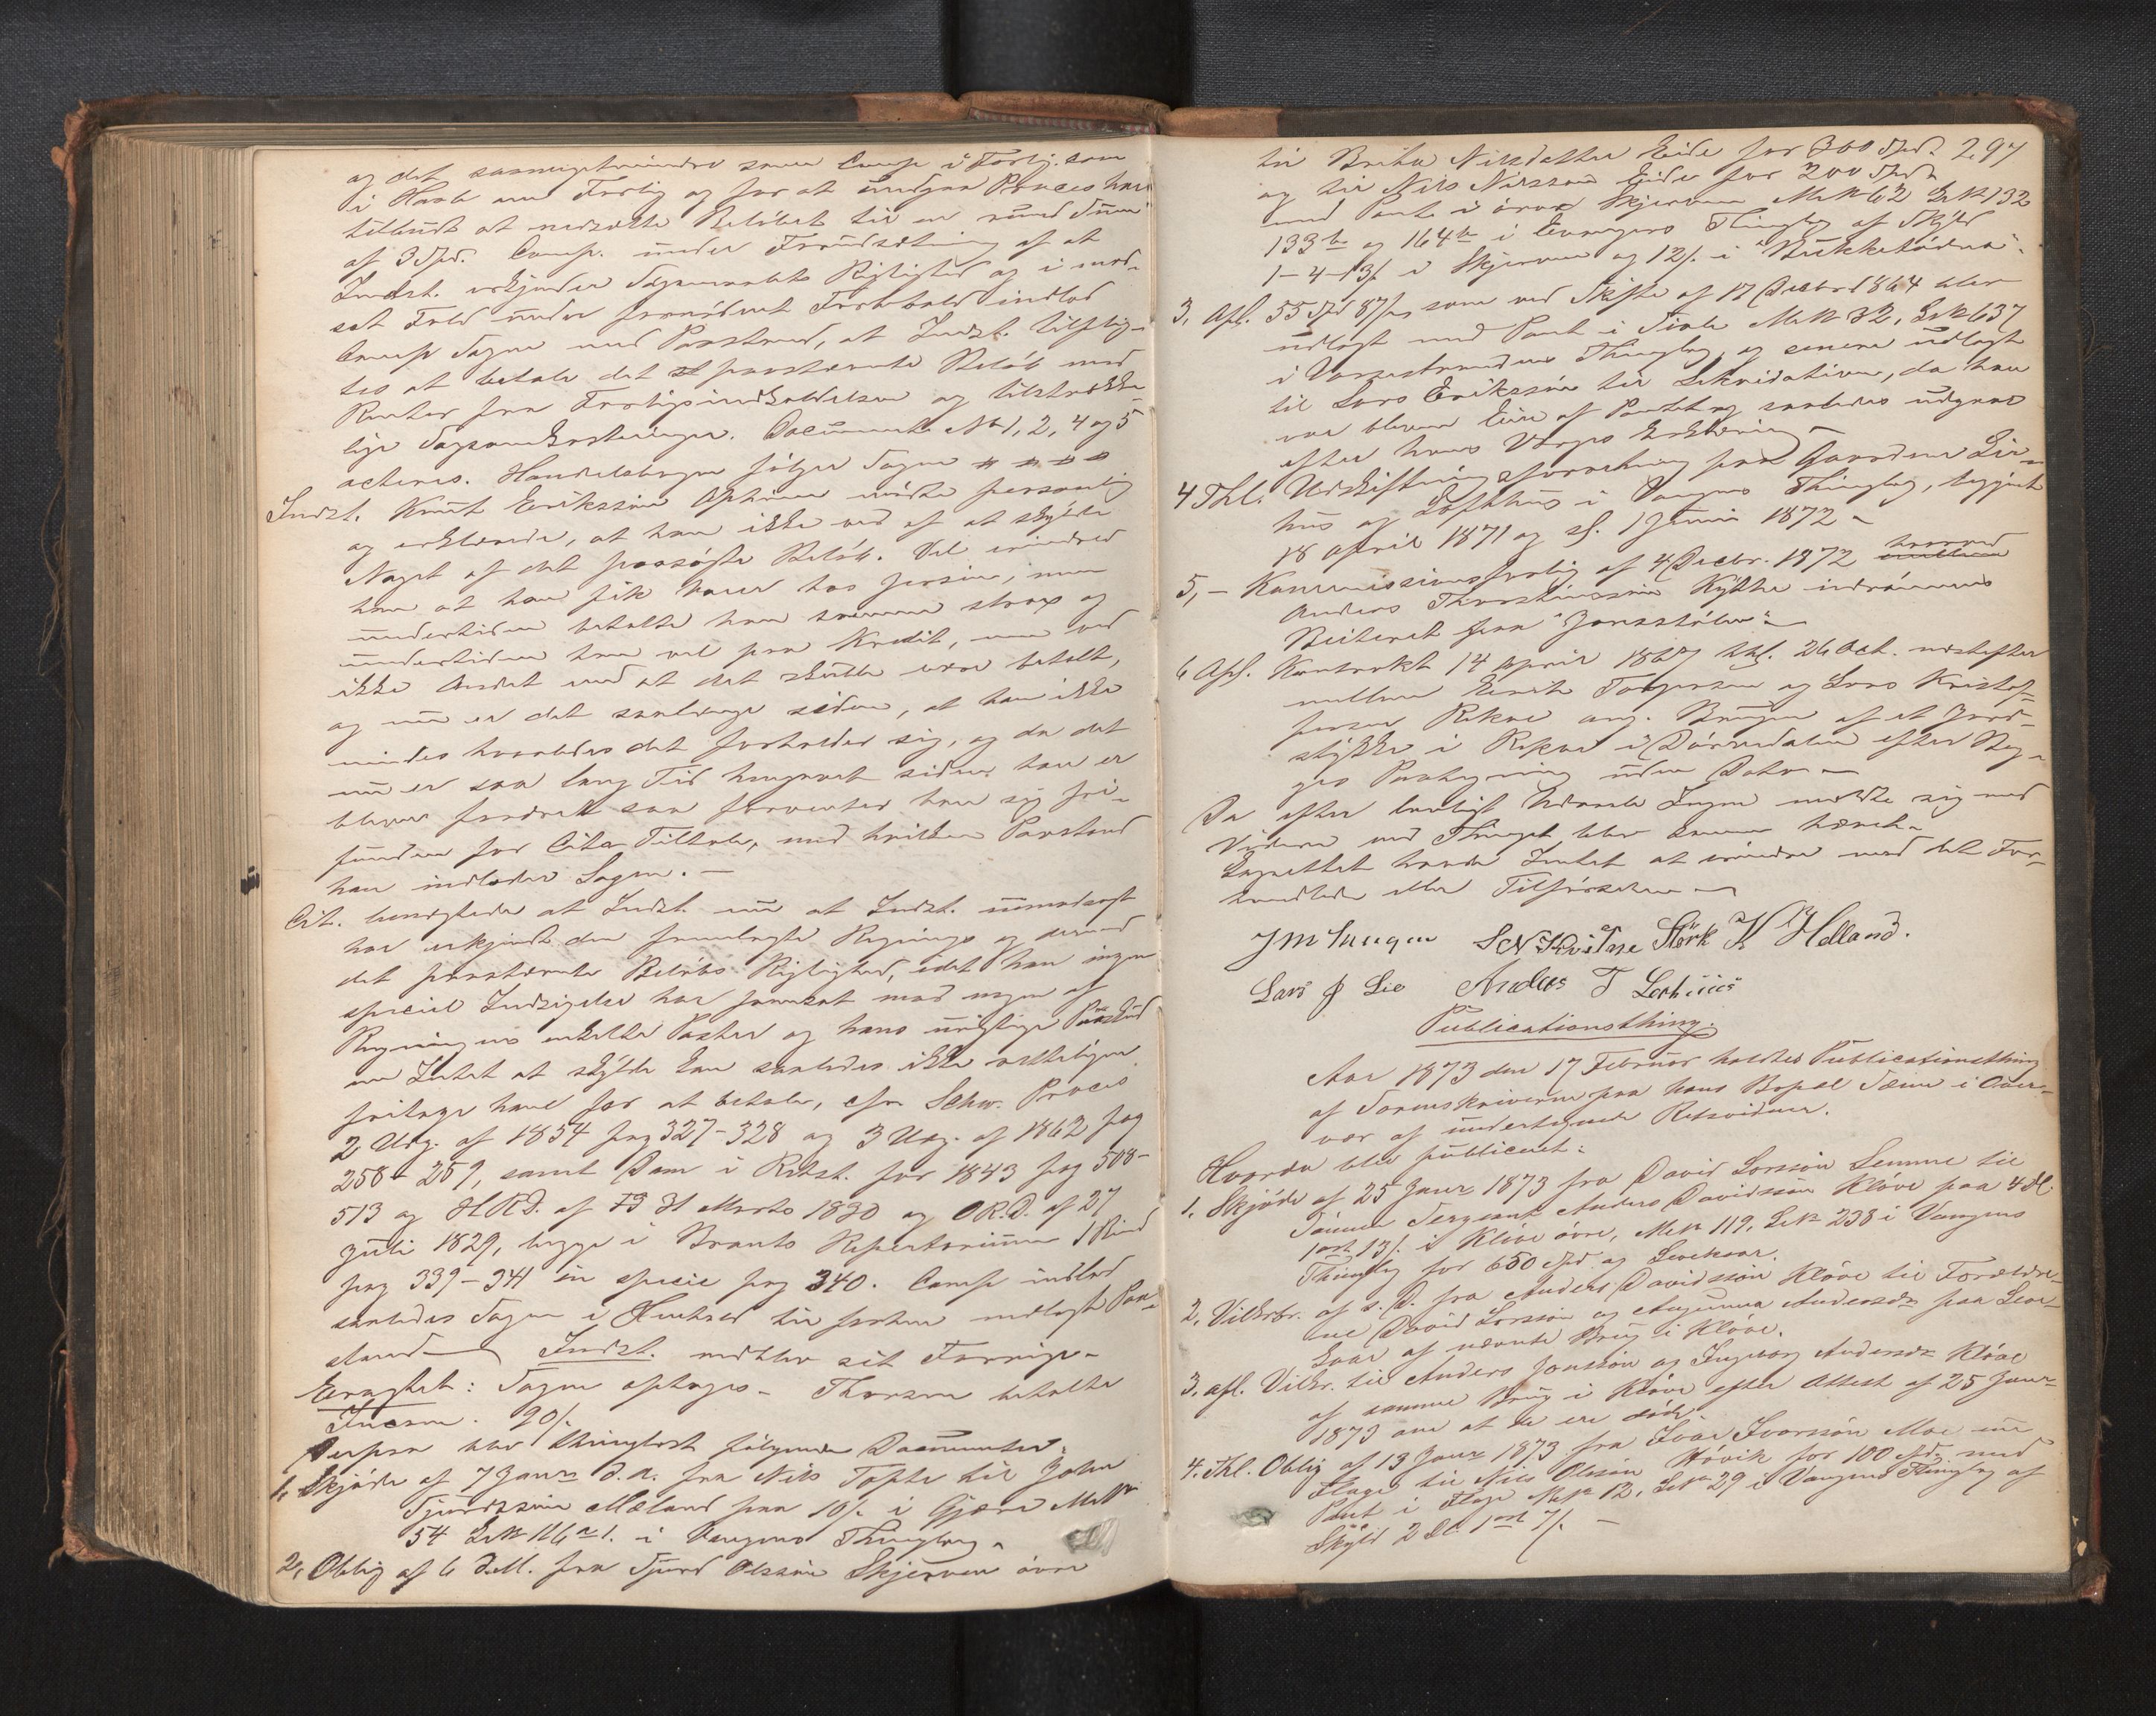 og det saameget mindre som Comp. i Forlig. som
i Haab um Forlig og for at undgaa Proces har
tilbudt at nedsætte Beløbet til en rund Sum
af 3 Spd. Comp. under Forudsætning af at
Indst. erkjender Søgsmaalets Rigtighed og i mod-
sat Fald under fornødent Forbehold indlod
Comp Sagen med Paastand, at Indst. tilplig-
tes at betale det paastævnte Beløb med
Renter fra Forligsindkaldelsen og tilstrække-
lige Sagsomkostninger. Documenterne No 1, 2, 4 og 5
acteres. Handelsbogen følger Sagen
Indst. Knut Eriksson mødte personlig
og erklærede, at han ikke ved af at skylde
Noget af det paasøgte Beløb. Vel erindred
han at han fik Varer hos, men
undertiden betalte han samme strax og
undertiden tog han vel paa Kredit, men ved
ikke Andet end at det skulde være betalt,
og nu er det saalænge siden, at han ikke
mindes hvorledes det forholder sig, og da det
nu er saa lang Tid hengaaet siden han er
bleven krævet saa forventer han sig fri-
funden for Cit.s Tiltale, med hvilken Paastand
han indlader Sagen. –
Cit. benegtede at Indst. nu at Indst. uimodsagt
har erkjendt den fremlagte Regnings og derved
det paastævnte Beløbs Rigtighed, idet han ingen
speciel Indsigelse har fremsat mod nogen af
Regningens enkelte Poster og hans urigtige Paaskud
om Intet at skylde kan saaledes ikke retteligen
fritage ham for at betale, cfr. Schw. Proces
2 Udg. af 1854 pag 327–328 og 3 Udg. af 1862 pag
258–259, samt Dom i Retst. for 1843 pag 508–
513 og H.R.D. af 31 Marts 1830 og O.R.D. af 27
Juli 1829, begge i Brandts Repertorium 1 Bind
pag 339–341 in specie pag 340. Comp indlod
saaledes Sagen i Henhold til forhen nedlagt Paa-
stand – Indst. vedblev sit Forrige –
Eragtet: Sagen optages – Thorson betalte
Incam. 90/.
Derpaa blev thinglæst følgende Documenter:
1, Skjøde af 7 Januar d. A. fra Nils Tøfte til John
Sjurdssøn Mæland paa 10/. i Gjære M N
54 L N 116 a 1. i Vangens Thinglag –
2, Oblig af 6 d. M. fra Sjurd Olssøn Skjerven øvre
til Brita Nilsdatter Eide for 300 Spd. 297
og til Nils Nilssøn Eide for 200 Spd
med Pant i øvre Skjerven M N 62 L N 132
133 b og 164 b i Evangers Thinglag af Skyld
1–4–13/. i Skjerven og 12/. i
3, Afl. 55 Spd 87/. som ved Skifte af 17 Decbr 1864 blev
udlagt med Pant i M N 32, L N 637
i Vossestrandens Thinglag og senere udlagt
til Lars Erikssøn til Lekvidation, da han
var bleven Eier af Pantet og saaledes udgaar
efter hans Verges Erklæring –
4 Thl. Udskiftningsforretning paa Gaardene Lir-
hus og Lofthus i Vangens Thinglag, begyndt
18 April 1871 og sl. 1 Juni 1872 –
5, – Kommissionsforlig af 4 Decbr. 1872 hvorved
Anders Thorsteinssøn Kytte indrømmes
Beiteret paa "Jonsstølen" –
6 Afl. Kontrakt 14 April 1867 thl. 26 Oct. næstefter
mellem Eirik Torgersen og Lars Kristof-
fersen Rekve ang. Brugen af et Jord-
stykke i Rekve i efter Beg-
ges Paategning uden Dato –
Da efter lovligt Udraab Ingen meldte sig med
Videre ved Thinget blev samme hævet –
Lagrettet havde Intet at erindre mod det For-
handlede eller Tilførselen –
Størk K Helland.
Lars J Lie Anders T
Publicationsthing.
Aar 1873 den 17 Februar holdtes Publicationsthing
af Sorenskriveren paa hans Bopæl Sæim i Over-
vær af undertegnede Retsvidner.
Hvorda blev publiceret:
1, Skjøde af 25 Januar 1873 fra David Larssøn Lemme til
Sønnen Sergeant Anders Davidssøn Kløve paa 4 M.
1 ort 13/. i Kløve øvre, M N 119, L N 238 i Vangens
Thinglag for 650 Spd og Levekaar.
2, Vilkrbr. af s. D. fra Anders Davidssøn Kløve til Foreldre-
ne David Larssøn og Angunna Andersdr paa Leve-
kaar af nævnte Brug i Kløve.
3, afl. Vilkr. til Anders Jonssøn og Ingeborg Andersdr Kløve
af samme Brug i Kløve efter Attest af 25 Januar
1873 om at de ere døde.
4, Thl. Oblig af 13 Januar 1873 fra Ivar Ivarssøn Moe nu
Flage til Nils Olssøn Høvik for 100 Spd. med
Pant i Flage M N 12, L N 29 i Vangens Thinglag af
Skyld 2 Dl 1 ort 7/. –